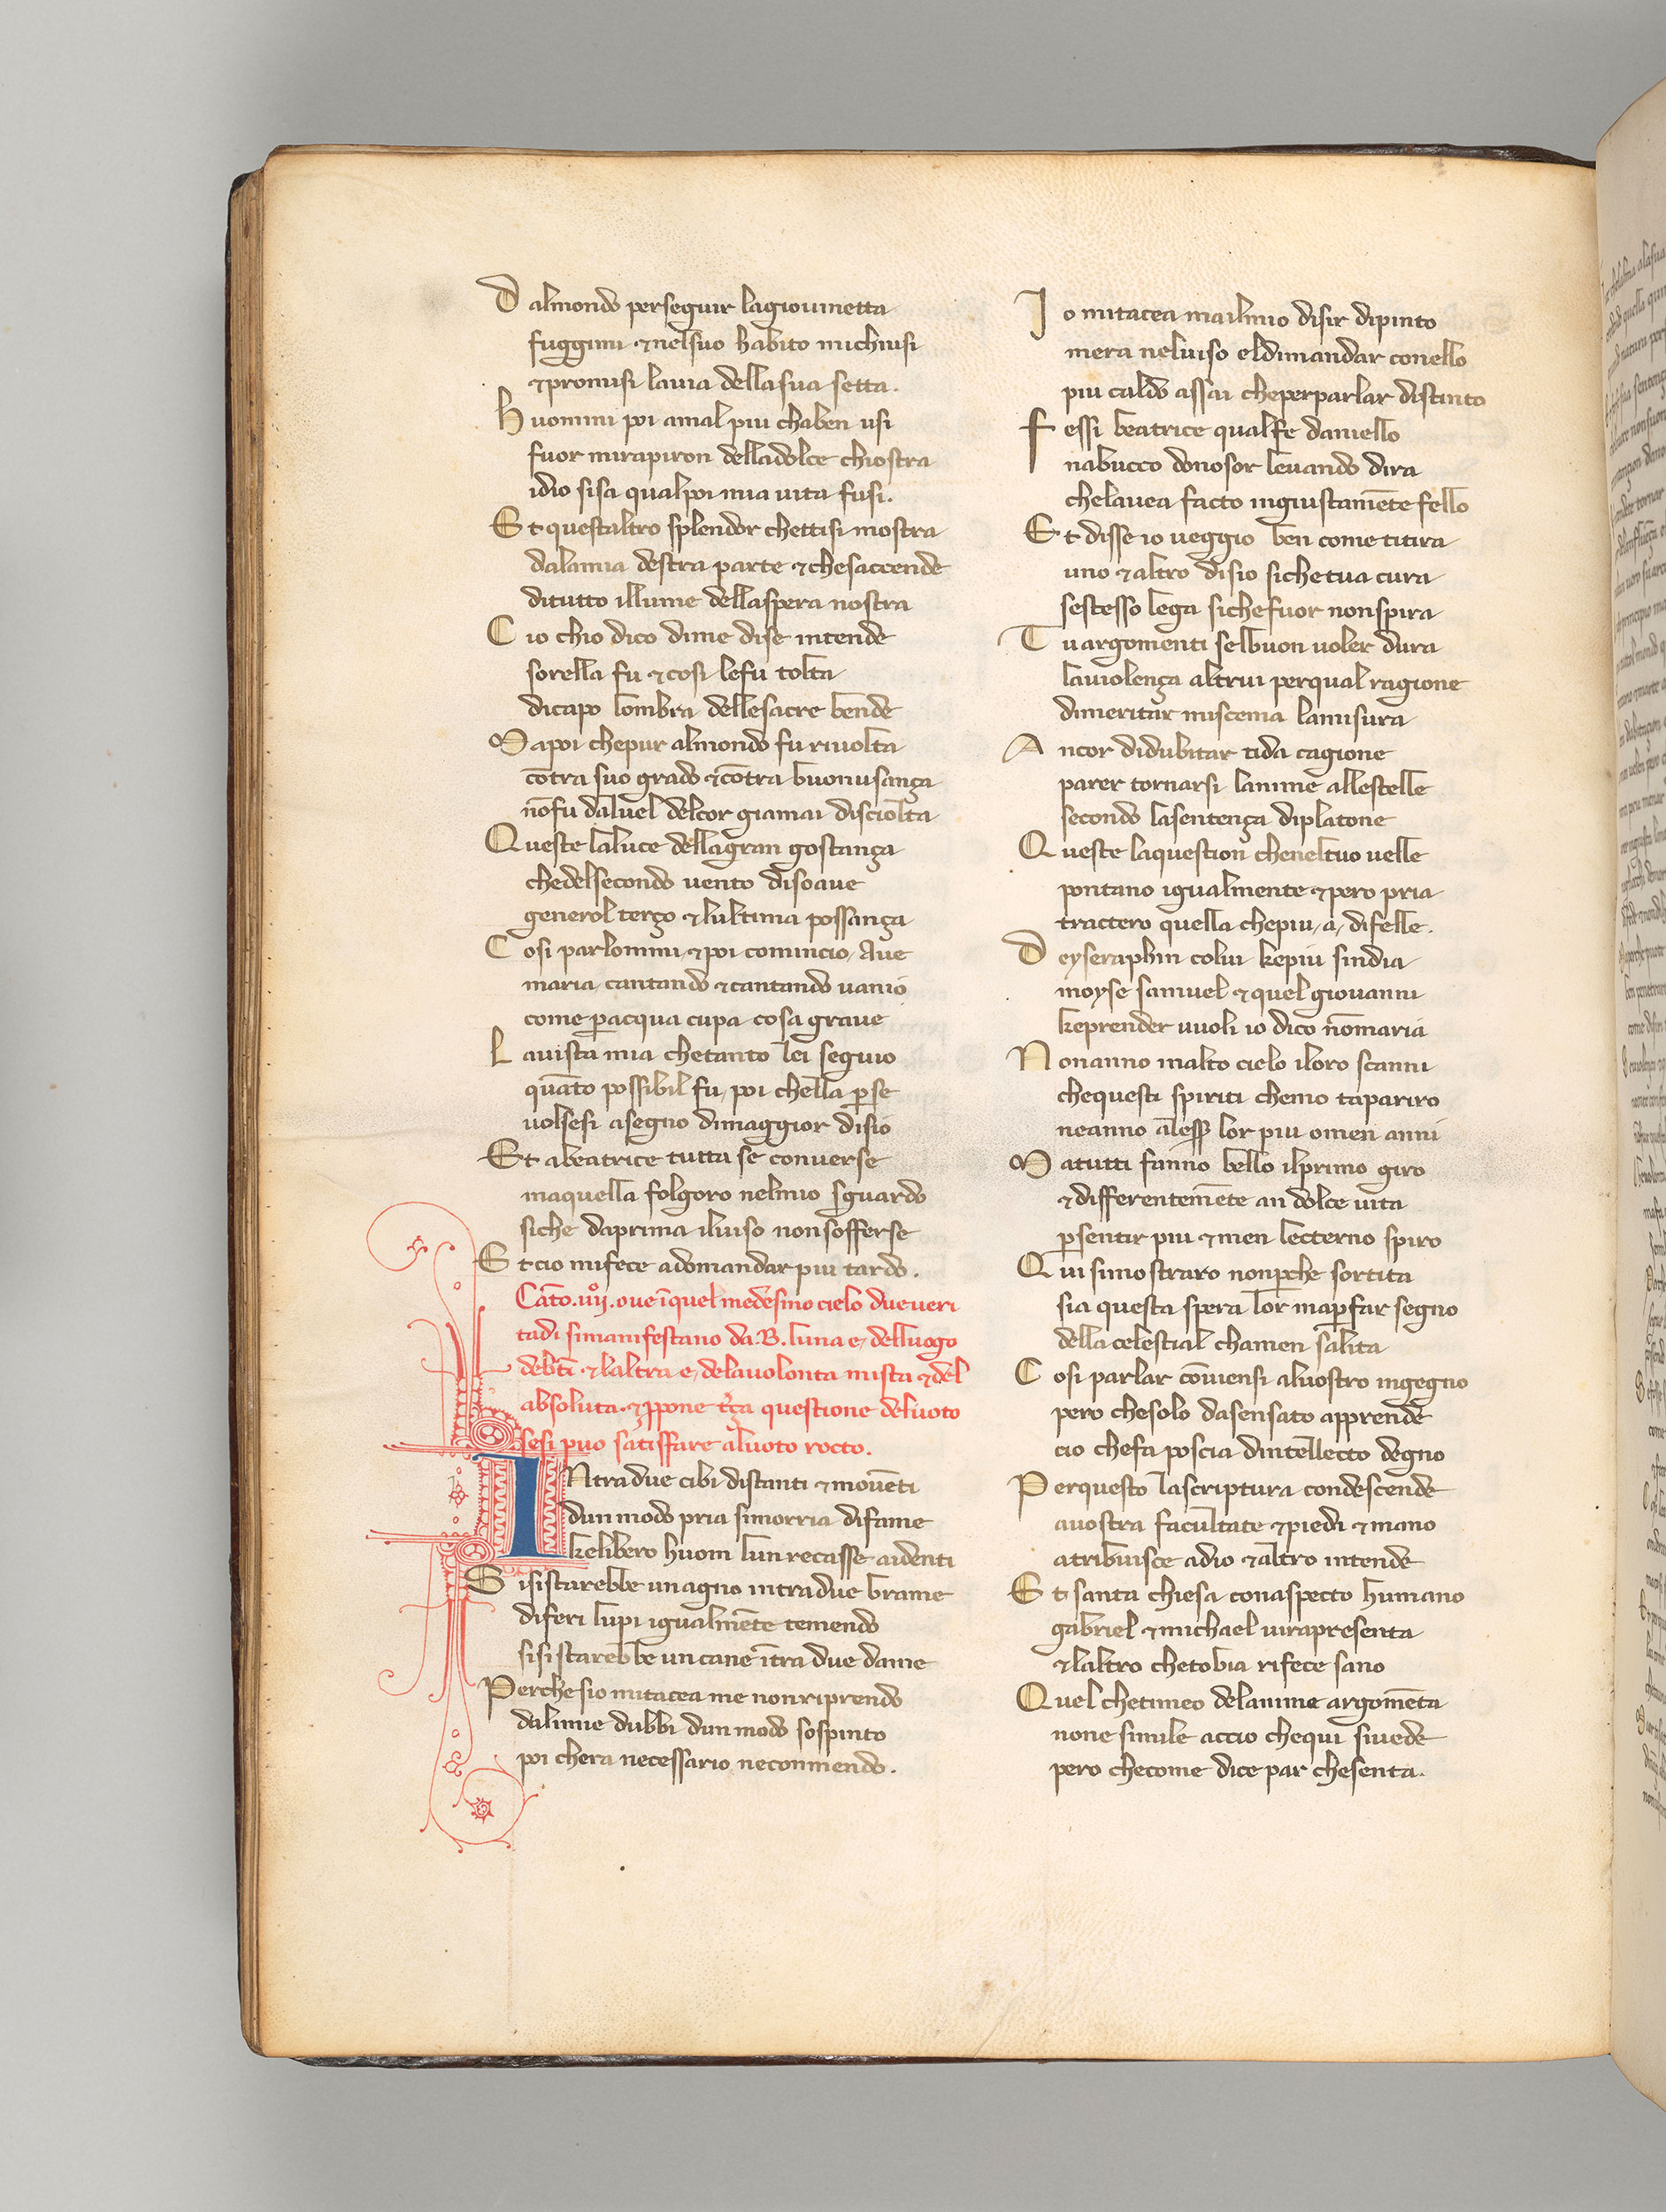 D almondo perseguir lagiouinetta
fuggimi ⁊nelsuo habito michiusi
⁊promisi lauia dellasua setta.
H uomini poi amal piu chaben usi
fuor mirapiron delladolce chiostra
idio sisa qualpoi mia uita fusi.
E t questaltro splendor chettisi mostra
dalamia destra parte ⁊chesaccende
ditutto illume dellaspera nostra
C io chio dico dime dise intende
sorella fu ⁊cosi lefu tolta
dicapo lombra dellesacre bende
M apoi chepur almondo fu riuolta
cōtra suo grado ⁊cōtra buonusança
nōfu daluel delcor giamai disciolta
Q ueste laluce dellagran gostança
chedelsecondo uento disoaue
generol terço ⁊lultima possança
C osi parlommi ⁊poi comincio Aue
maria cantando ⁊cantando uanio
come ꝑacqua cupa cosa graue
L auista mia chetanto lei seguio
quāto possibil fu, poi chella ꝑse
uolsesi asegno dimaggior disio
Et abeatrice tutta se conuerse
maquella folgoro nelmio sguardo
siche daprima iluiso nonsofferse
E tcio mifece adomandar piu tardo.
Cāto .iiijº. oue īquel medesimo cielo due ueri
tadi simanifestano da .B. luna e, delluogo
debti ⁊laltra e, delauolonta mista ⁊del
absoluta. ⁊ꝓpone tr̄ça questione deluoto
sesi puo satisffare aluoto rocto.
INtradue cibi distanti ⁊mouēti
dun modo pria simorria difame
kelibero huom lun recasse aidenti
S isistarebbe unagno intradue brame
diferi lupi igualmēte temendo
sisistarebbe uncane ītra due dame
Perchesio mitacea me nonriprendo
dalimie dubbi dun modo sospinto
poi chera necessario necommendo.
I o mitacea mailmio disir dipinto
mera neluiso eldimandar conello
piu caldo assai cheperparlar distinto
F essi beatrice qualfe daniello
nabucco donosor leuando dira
chelauea facto ingiustamēte fello
E t disse io ueggio ben come titira
uno ⁊altro disio sichetua cura
sestesso lega sichefuor nonspira
T uargomenti selbuon uoler dura
lauiolença altrui perqual ragione
dimeritar miscema lamisura
A ncor didubitar tida cagione
parer tornarsi lanime allestelle
secondo lasentença diplatone
Q ueste laquestion cheneltuo uelle
pontano igualmente ⁊pero pria
tractero quella chepiu, a, difelle.
D eyseraphin colui kepiu sindia
moyse samuel ⁊quel giouanni
keprender uuoli io dico nōmaria
N onanno inalto cielo iloro scanni
chequesti spiriti chemo tapariro
neanno alesser lor piu omen anni
M atutti fanno bello ilprimo giro
⁊differentemēte an dolce uita
ꝑsentir piu ⁊men letterno spiro
Q ui simostraro nonꝑche sortita
sia questa spera lor maꝑfar segno
della celestial chamen salita
C osi parlar cōuiensi aluostro ingegno
pero chesolo dasensato apprende
cio chefa poscia dintellecto degno
P erquesto lascriptura condescende
auostra facultate ⁊piedi ⁊mano
atribuisce adio ⁊altro intende
E t santa chiesa conaspecto humano
gabriel ⁊michael uirapresenta
⁊laltro chetobia rifece sano
Q uel chetimeo delanime argomēta
none simile accio chequi siuede
pero checome dice par chesenta.